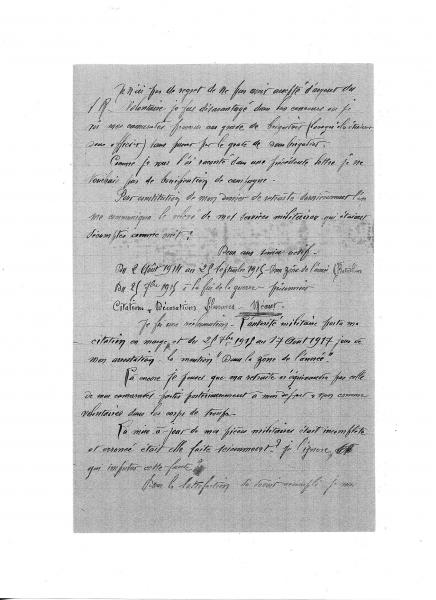 Je n'ai pas de regret de ne pas avoir accepté d'argent du
S.R. Volontaire je fus désavantagé dans les concours où je
vis mes camarades promus au grade de brigadier (lorsqu'ils étaient
sous-officiers) sans passer par le grade de
Comme je vous l'ai raconté dans une précédente lettre je ne
touchais pas de de campagne.
Pour constitution de mon dossier de retraite dernièrement l'on
me communiqua le relevé de mes services militaires qui étaient
décomptés comme suit :
Deux ans service actif.
Du 2 Août 1914 au 25 Septembre 1915 dans zône de l'armée
Du 25 7bre 1915 à la fin de la guerre prisonnier
Citations, Décorations, Blessures - Néant.
Je fis une réclamation. L'autorité militaire porta ma
citation en marge et du 25 7bre 1915 au 17 Août 1917 jour de
mon arrestation la mention "Dans la zône de l'armée".
Là encore je pense que ma retraite n'équivaudra pas celle
de mes camarades partis postérieurement à moi et non comme
volontaires dans les corps de troupe.
La mise à jour de mes pièces militaires était incomplète
et erronée était-elle faite sciemment ? je l'ignore,
qui imputer cette faute ?
Pour la satisfaction du devoir accompli je me